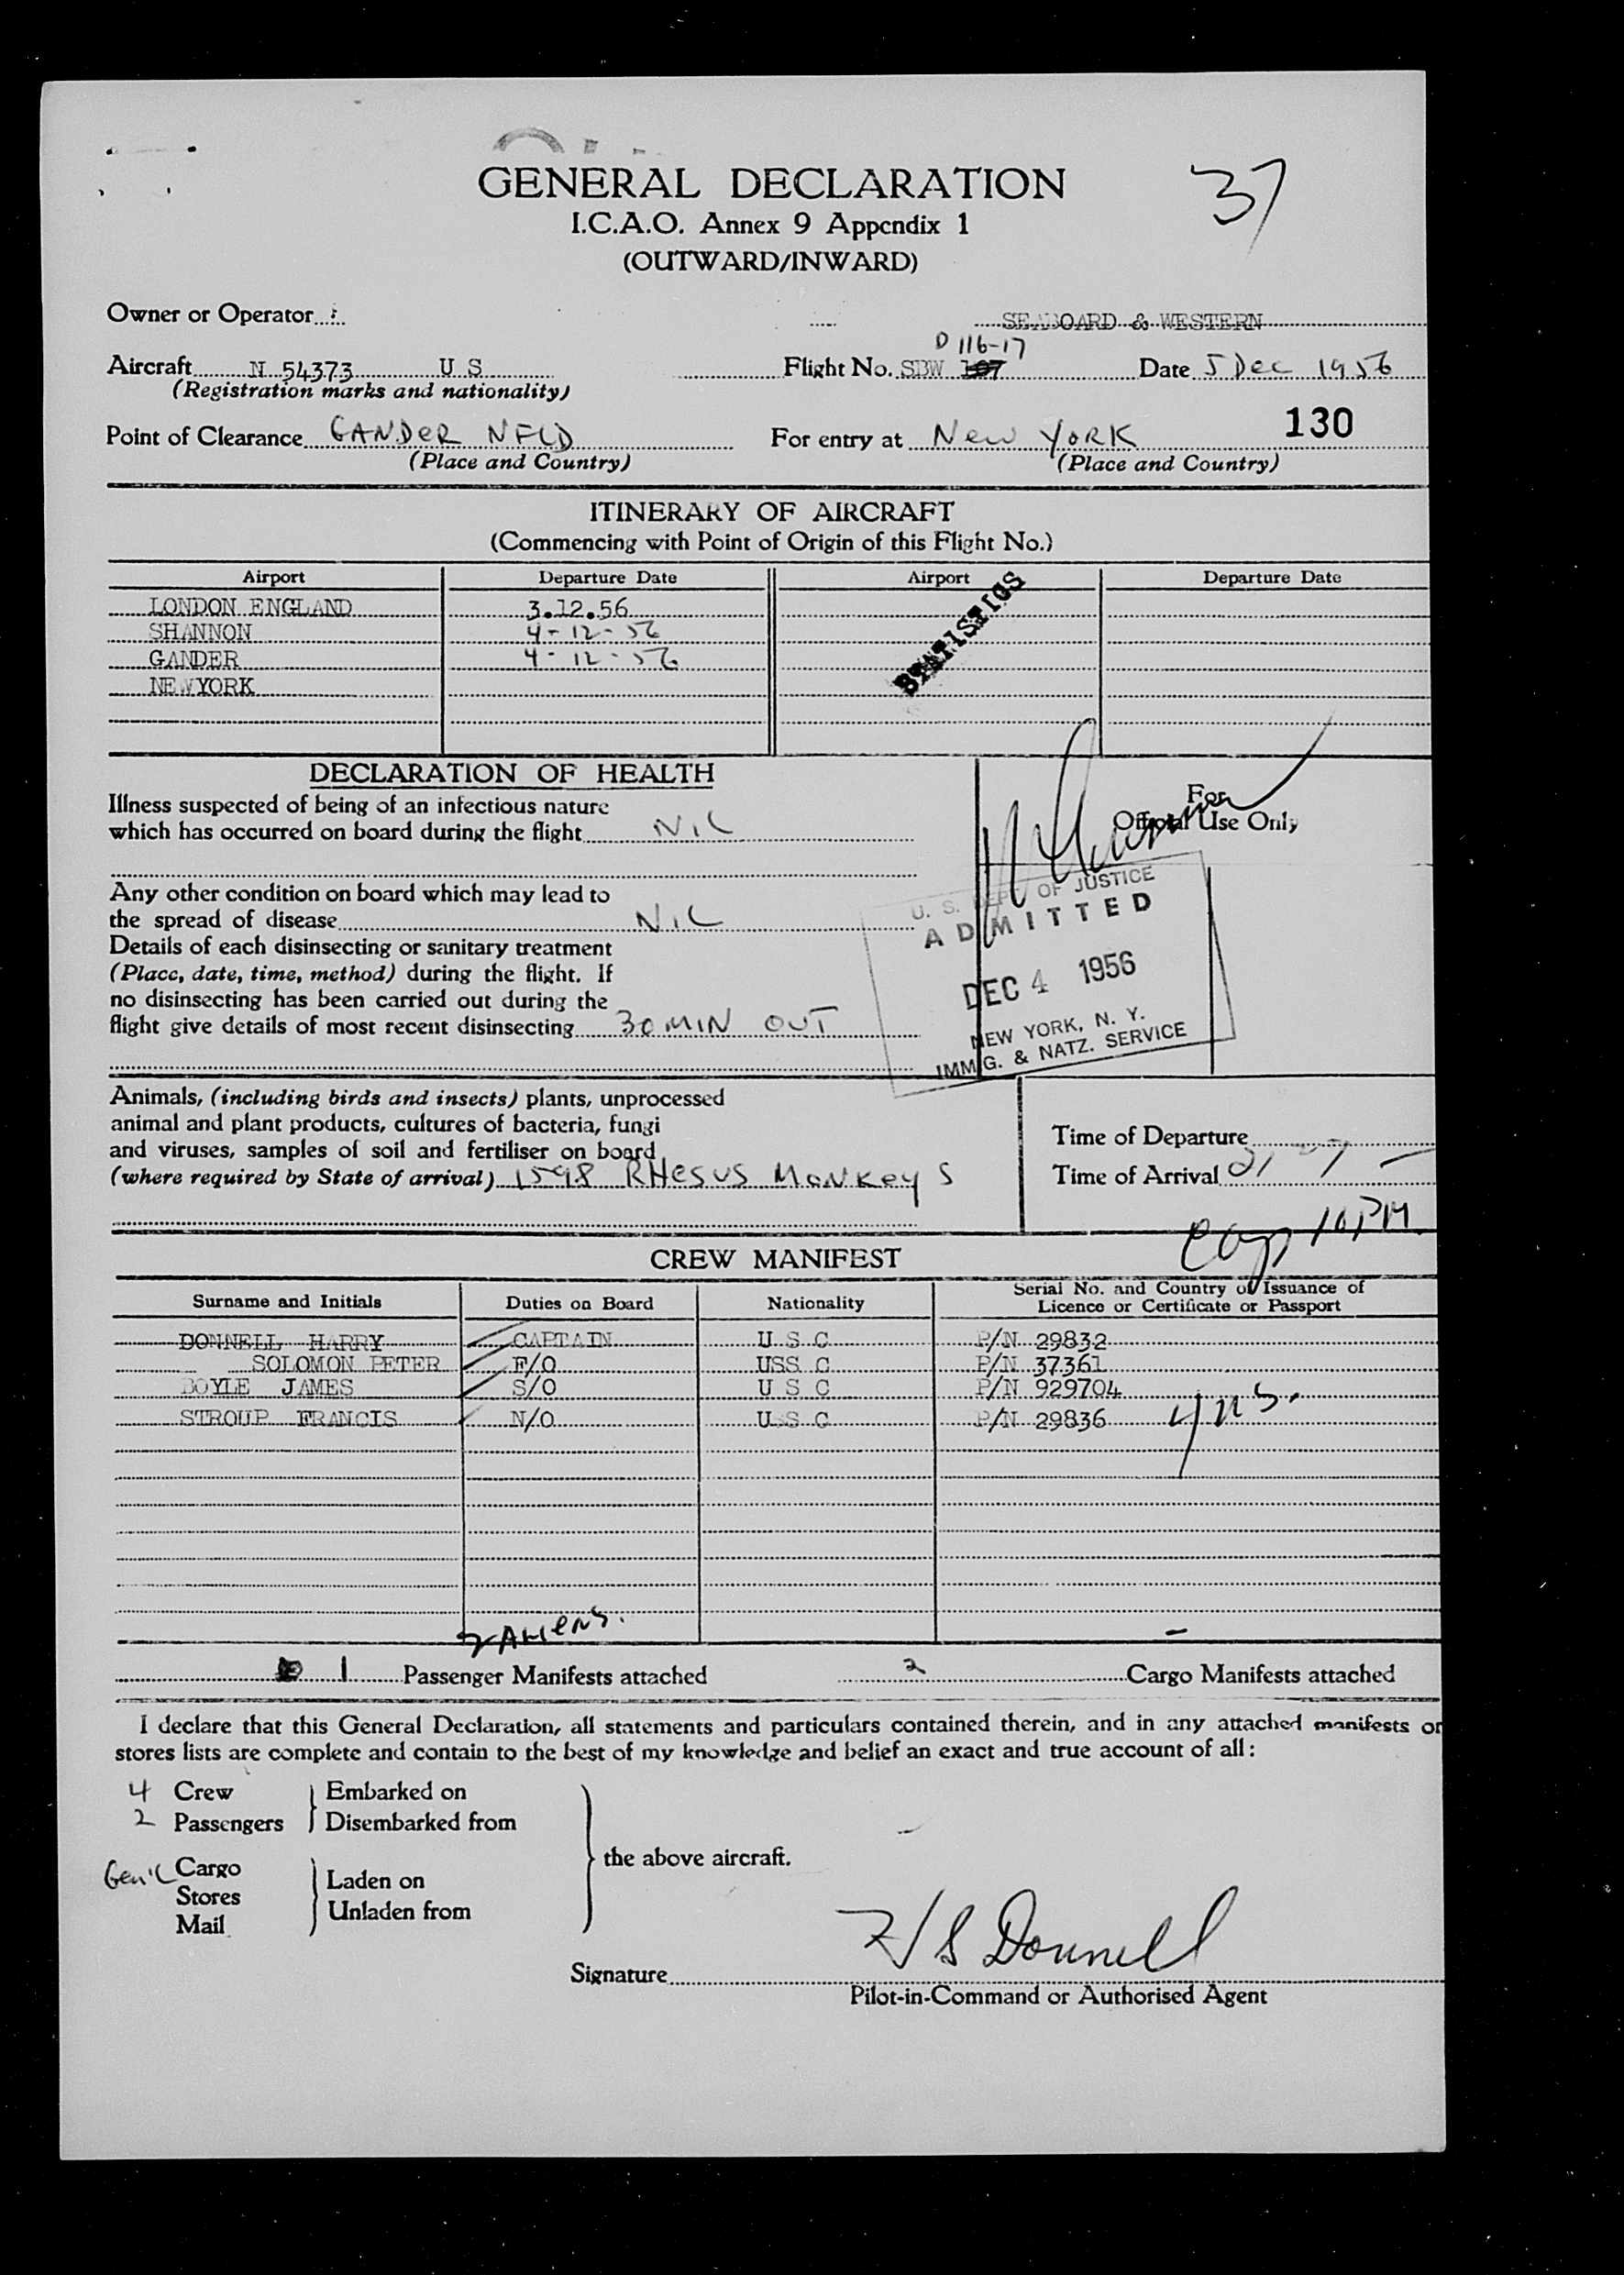 GENERAL DECLARATION
37
I.C.A.O. Annex 9 Appendix 1
(OUTWARD/INWARD)
Owner or Operator SEABOARD & WESTERN
D 116-17
Aircraft N 54373 U S Flight No. SBW 107 Date 5 Dec 1956
(Registration marks and nationality)
130
Point of Clearance GANDER NFLD For entry at New YORK
(Place and Country) (Place and Country)
ITINERARY OF AIRCRAFT
(Commencing with Point of Origin of this Flight No.)
Airport Departure Date Airport Departure Date
LONDON ENGLAND 3.12.56
SHANNON 4-12-56
GANDER 4-12-56
NEWYORK
STATISTICS
DECLARATION OF HEALTH
For
Official Use Only
Illness suspected of being of an infectious nature
which has occurred on board during the flight NIL
Any other condition on board which may lead to
the spread of disease NIL
Details of each disinsecting or sanitary treatment
(Place, date, time, method) during the flight. If
no disinsecting has been carried out during the
flight give details of most recent disinsecting 30 MIN OUT
U. S. DEPT OF JUSTICE
ADMITTED
DEC 4 1956
NEW YORK, N. Y.
IMMIG. & NATZ. SERVICE
Animals, (including birds and insects) plants, unprocessed
animal and plant products, cultures of bacteria, fungi
and viruses, samples of soil and fertiliser on board
(where required by State of arrival) 1598 RHesus MoNKeyS
Time of Departure
Time of Arrival
10 PM
CREW MANIFEST
Surname and Initials Duties on Board Nationality Serial No. and Country of Issuance of
Licence or Certificate or Passport
DONNELL HARRY CAPTAIN U S C P/N 29832
SOLOMON PETER F/O USS C P/N 37361
BOYLE JAMES S/O U S C P/N 929704
STROUP FRANCIS N/O U S C P/N 29836
4 US.
2 ALIENS.
1 Passenger Manifests attached 2 Cargo Manifests attached
I declare that this General Declaration, all statements and particulars contained therein, and in any attached manifests or
stores lists are complete and contain to the best of my knowledge and belief an exact and true account of all:
4 Crew Embarked on
2 Passengers Disembarked from
the above aircraft.
Gen'l Cargo Laden on
Stores
Unladen from
Mail
H S Donnell
Signature
Pilot-in-Command or Authorised Agent